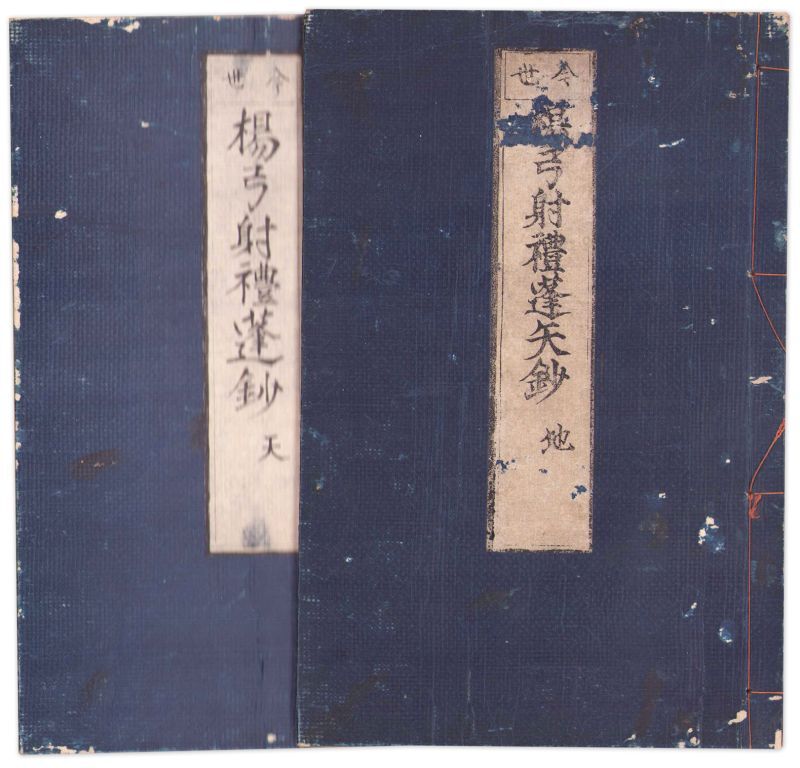 今世
楊弓射禮蓬鈔
天
今世
弓射禮蓬矢鈔
地